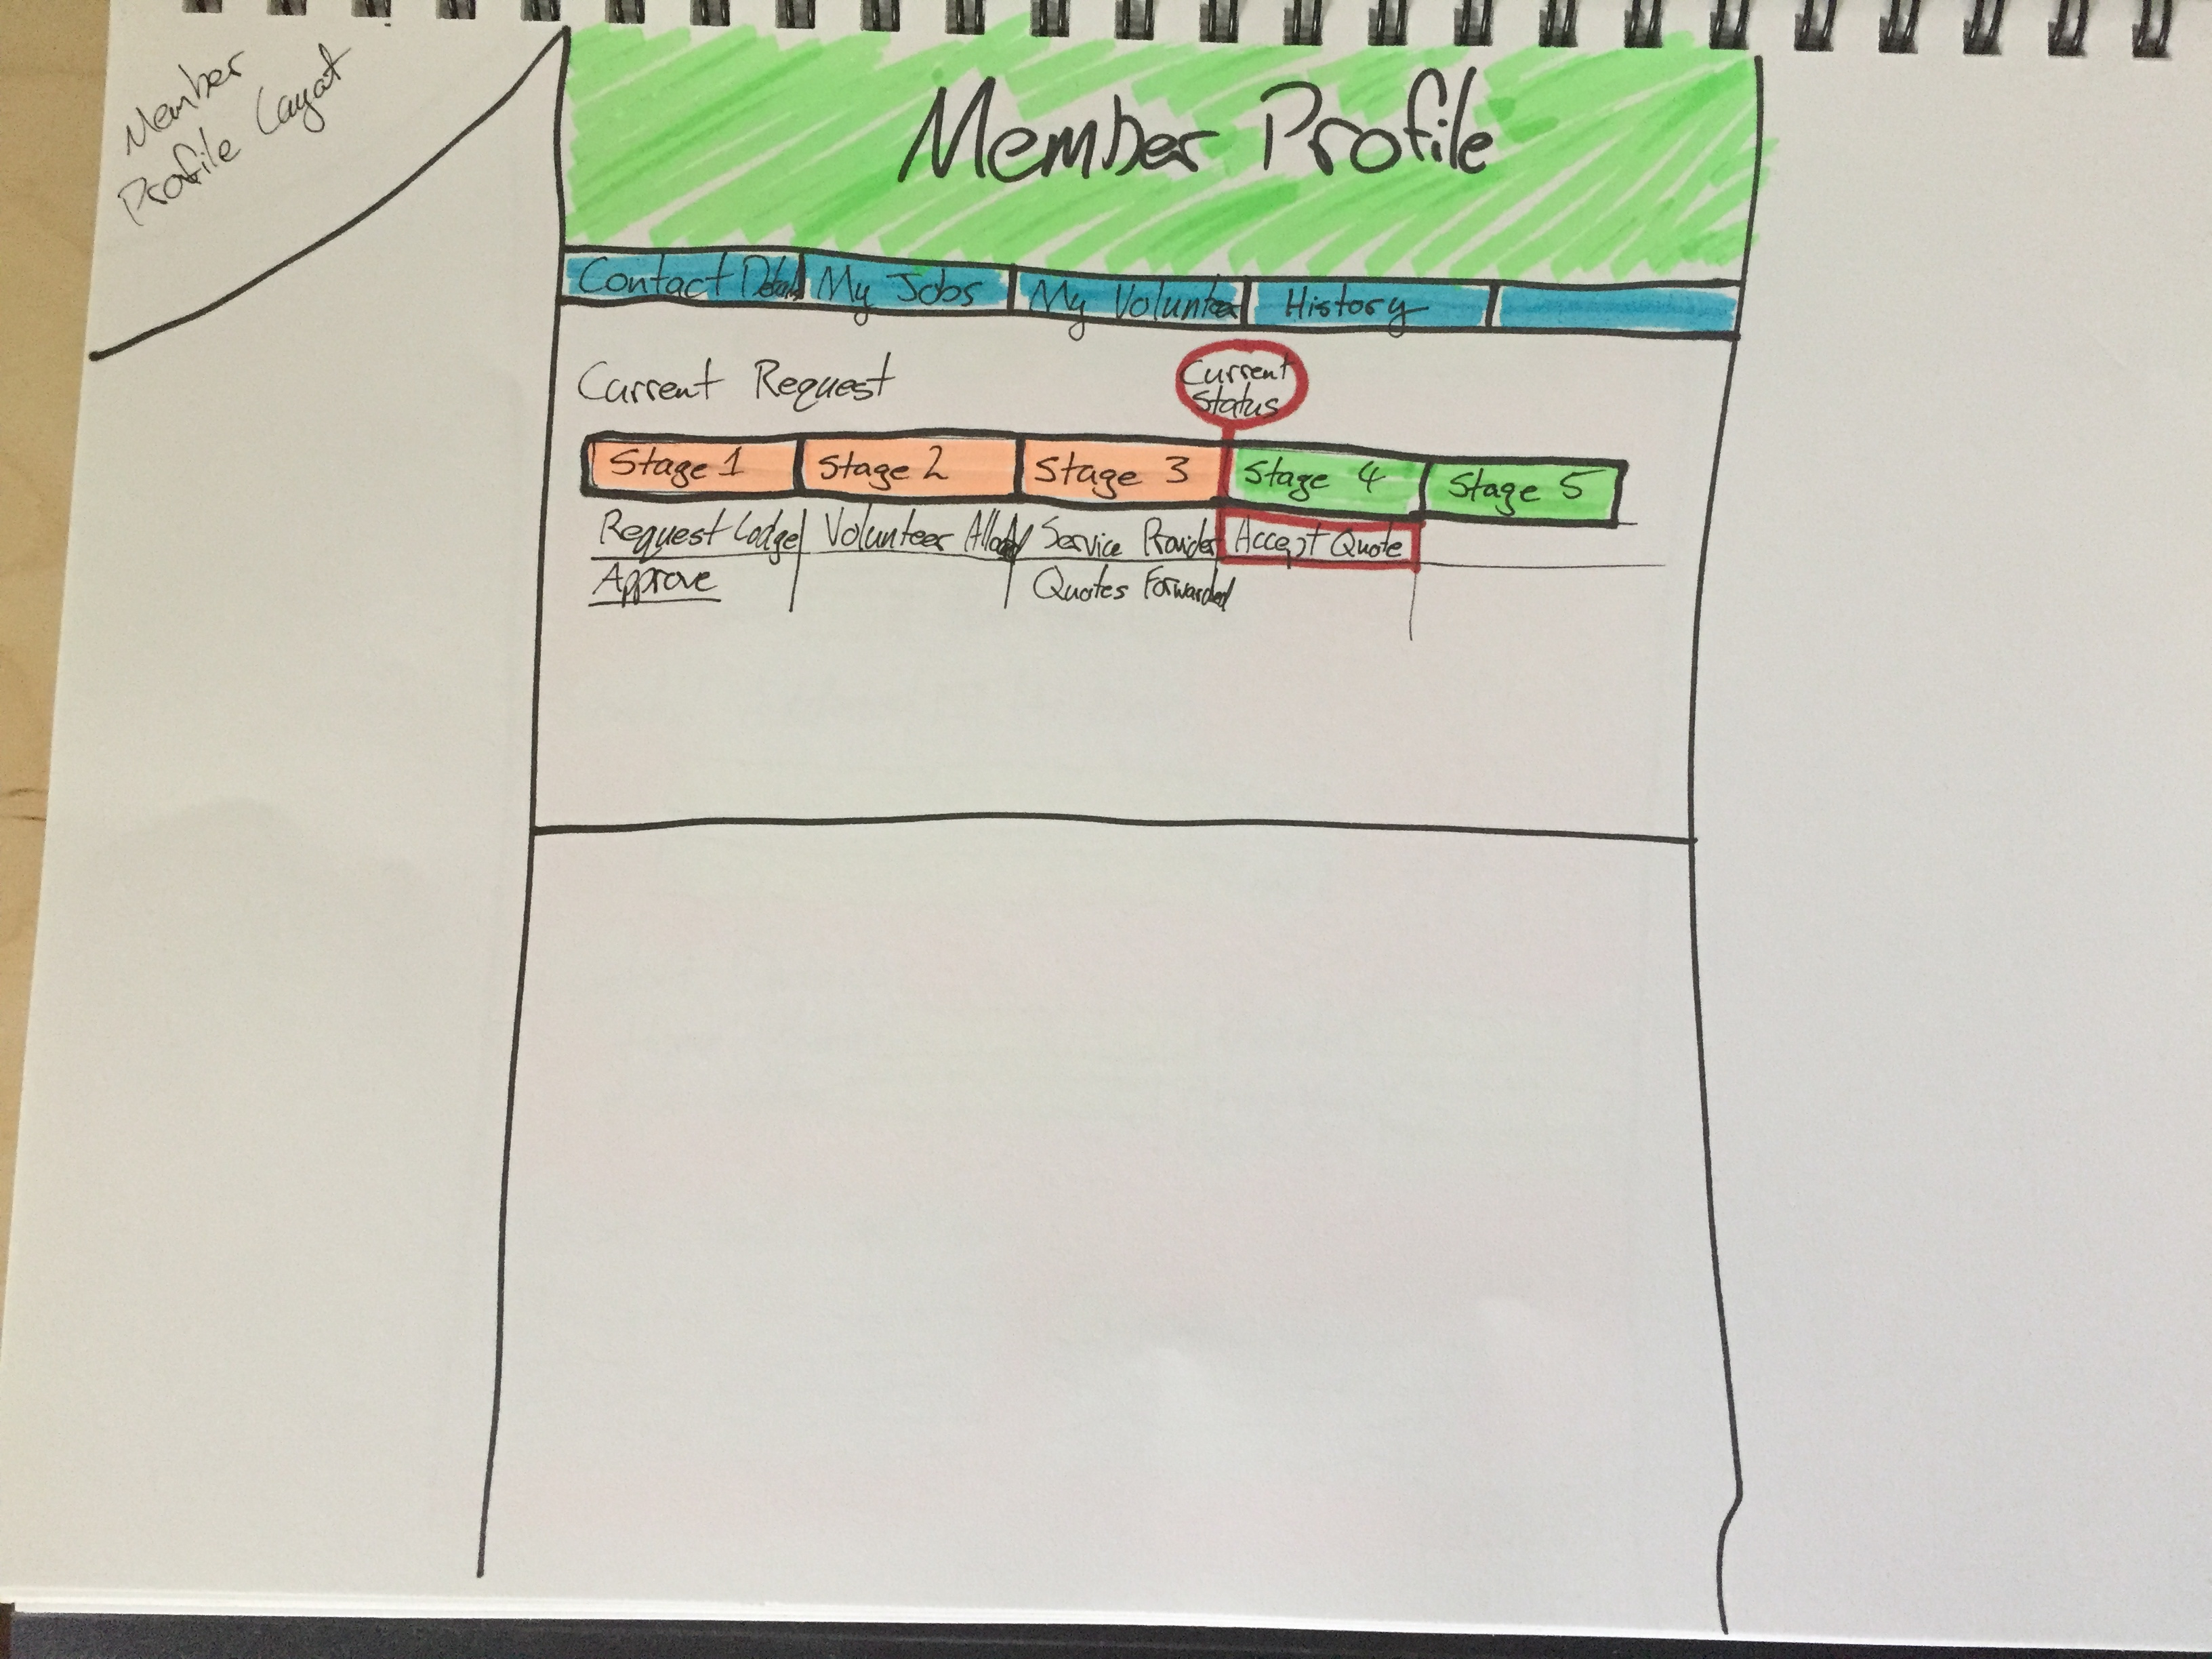 Member
Profile Layout
Member Profile
Contact Details
My Jobs
My Volunteer
History
Current Request
Current
Status
Stage 1
Stage 2
Stage 3
Stage 4
Stage 5
Request Lodge
Approve
Volunteer
Service Provider
Quotes Forwarded
Accept Quote